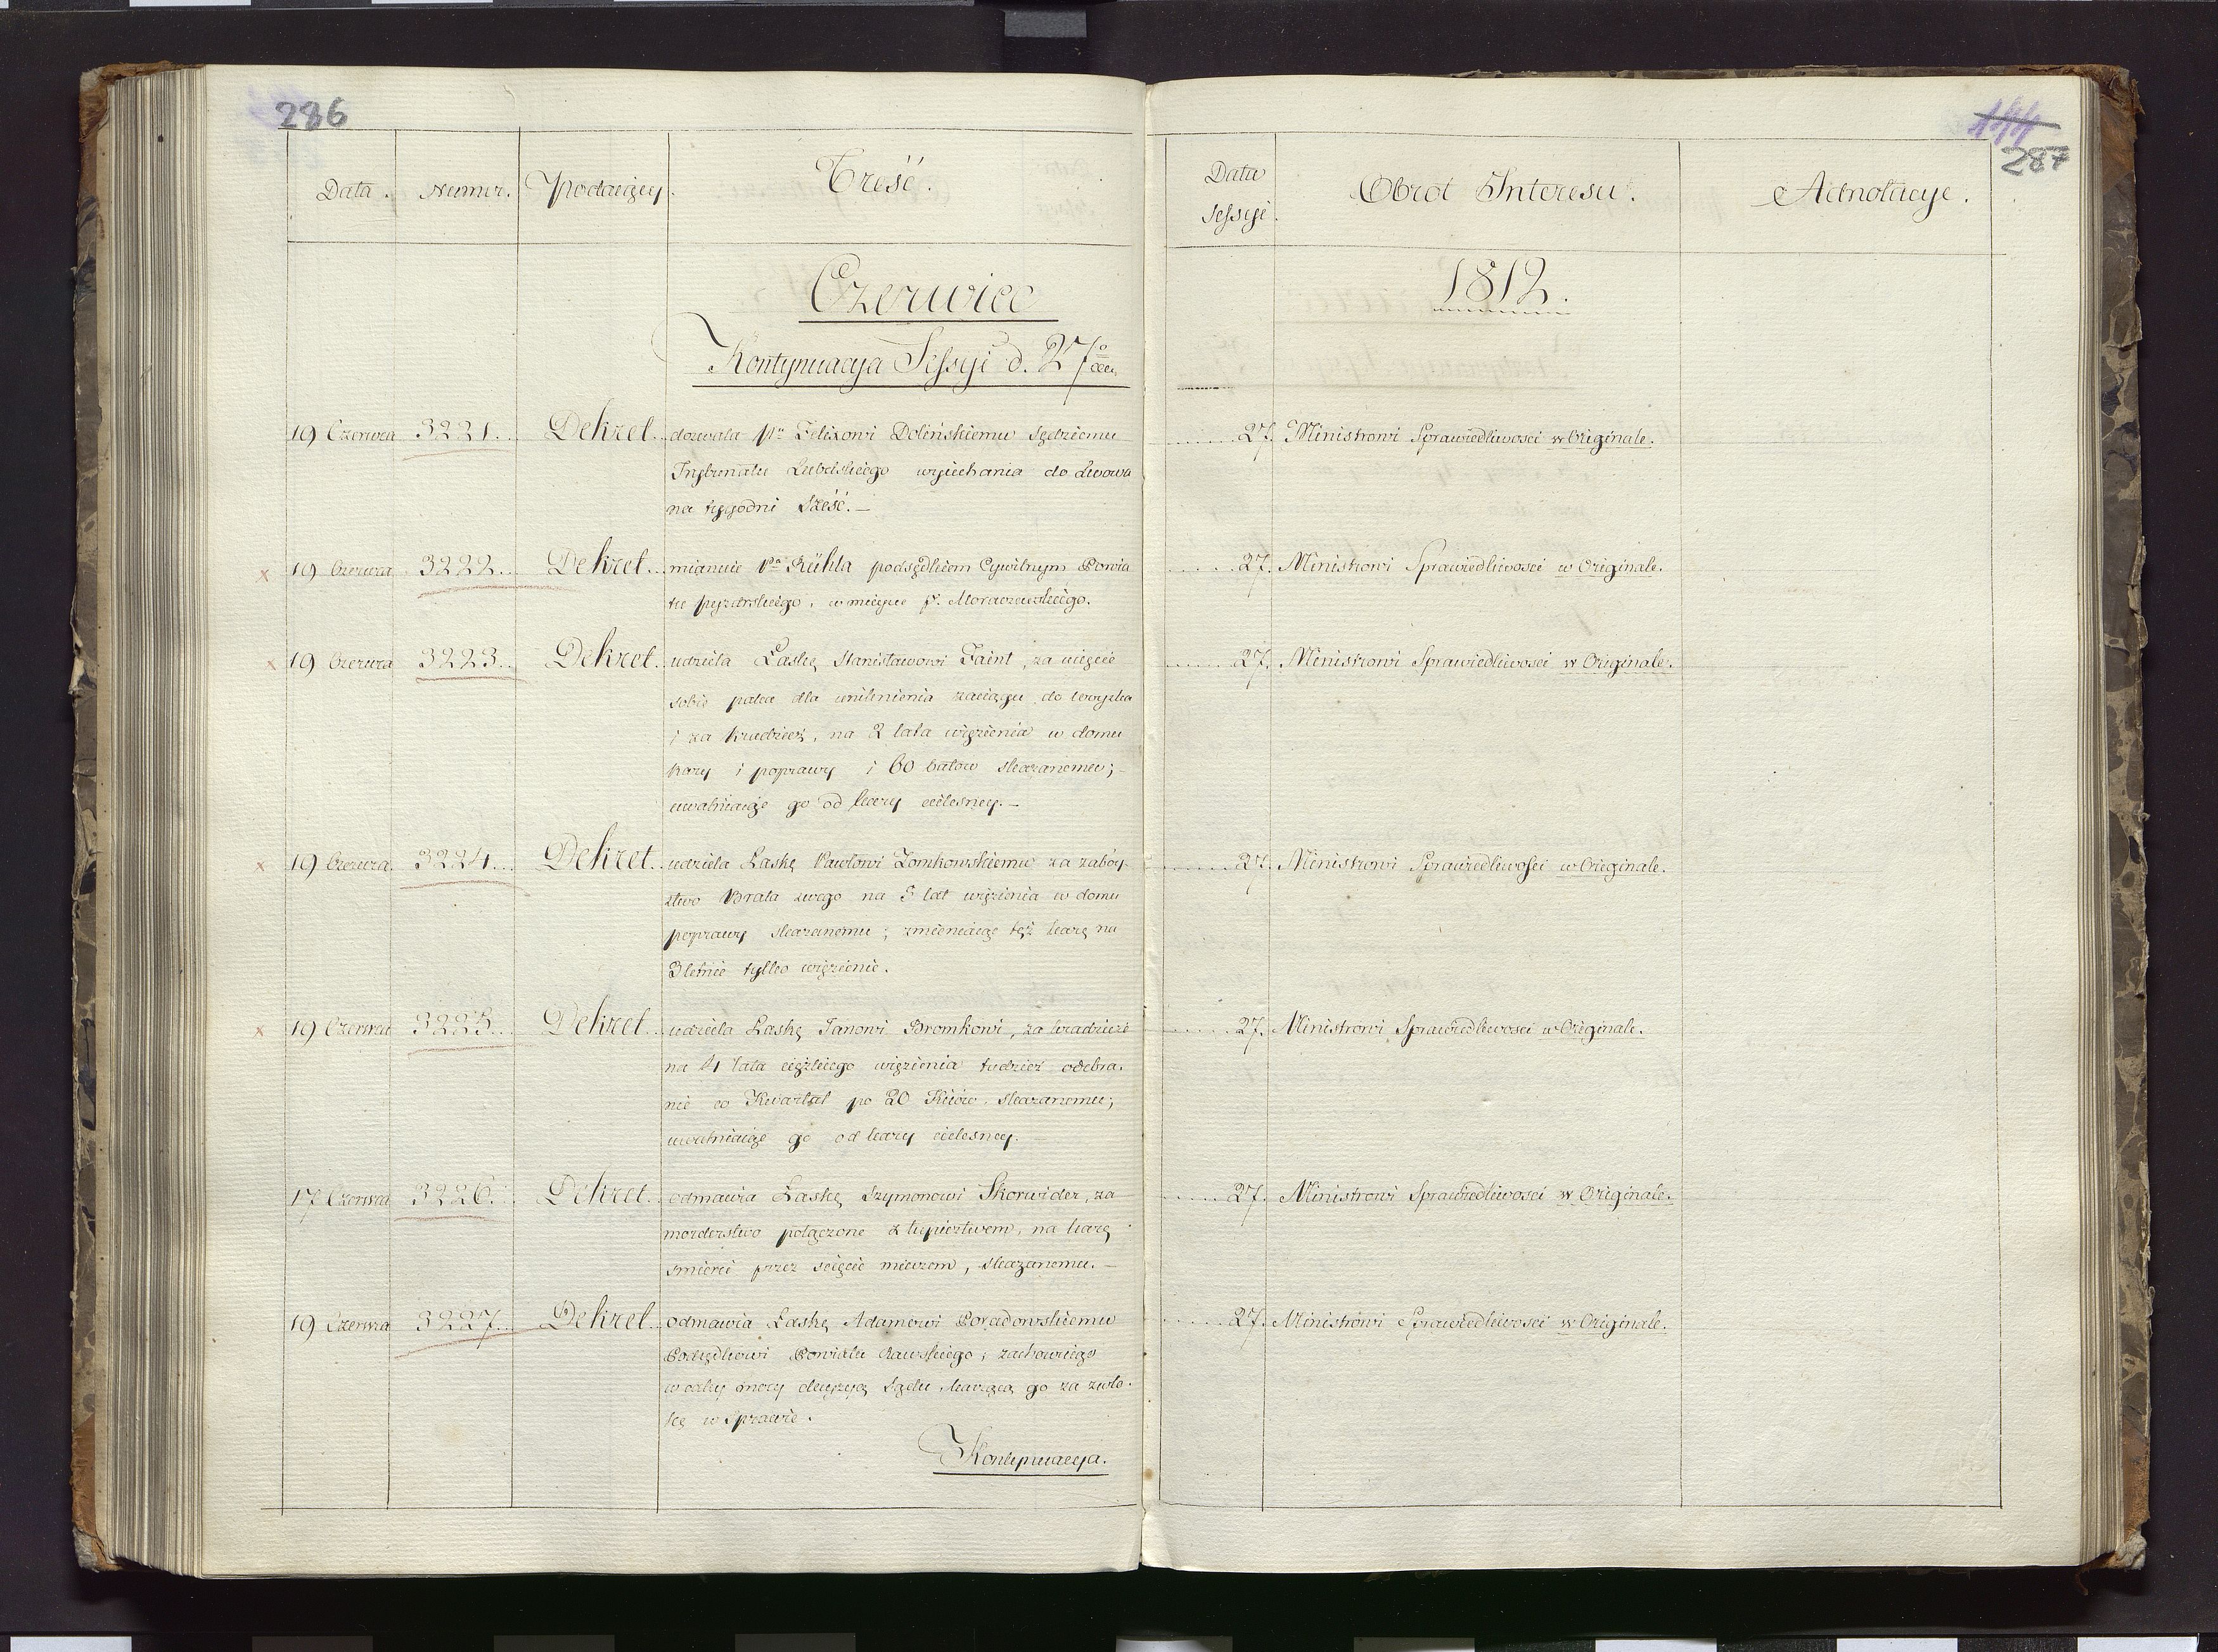 286
144
287
Data. Numer. Podaiący. Treść. Data Sessyi. Obrot Interesu. Adnotacye.
Czerwiec 1812.
Kontynuacya Sessyi d. 27o
19 Czerwca 3221. Dekret dozwala Pu Felixowi Dolińskiemu Sędziemu 27. Ministrowi Sprawiedliwosci w Originale.
Trybunału Lubelskiego wyjechania do Lwowa
na tygodni Sześć.—
x 19 Czerwca 3222. Dekret mianuie Pa Rühla podsędkiem Cywilnym Powia 27. Ministrowi Sprawiedliwosci w Originale.
tu pyzdrskiego, w mieysce P. Moraczewskiego.
x 19 Czerwca 3223. Dekret udziela Łaskę Stanisławowi Faint, za ucięcie 27. Ministrowi Sprawiedliwosci w Originale.
sobie palca dla uniknienia zaciągu do woyska
i za kradzież, na 2 lata więzienia w domu
kary i poprawy i 60 batów skazanemu;
uwalniaiąc go od kary cielesney.—
x 19 Czerwca 3224. Dekret udziela Łaskę Pawłowi Zomkowskiemu za zaboy 27. Ministrowi Sprawiedliwosci w Originale.
ztwo Brata swego na 5 lat więzienia w domu
poprawy skazanemu; zmieniaiąc tęż karę na
3 letnie tylko więzienie.
x 19 Czerwca 3225. Dekret udziela Łaskę Janowi Bromkowi, za kradzież 27. Ministrowi Sprawiedliwosci w Originale.
na 4 lata ciężkiego więzienia tudzież odebra.
nie co Kwartał po 20 Kiiów skazanemu;
uwalniaiąc go od kary cielesney.
17 Czerwca 3226. Dekret odmawia Łaskę Szymonowi Skorwider, za 27. Ministrowi Sprawiedliwosci w Originale.
morderstwo połączone z łupieztwem, na karę
smierci przez scięcie mieczem, skazanemu.—
19 Czerwca 3227. Dekret odmawia Łaskę Adamowi Poradowskiemu 27. Ministrowi Sprawiedliwosci w Originale.
Podsędkowi Powiatu Rawskiego; zachowuiąc
w całey mocy decyzyą Sądu, karzącą go za zwło.
kę w Sprawie.
Kontynuacya.